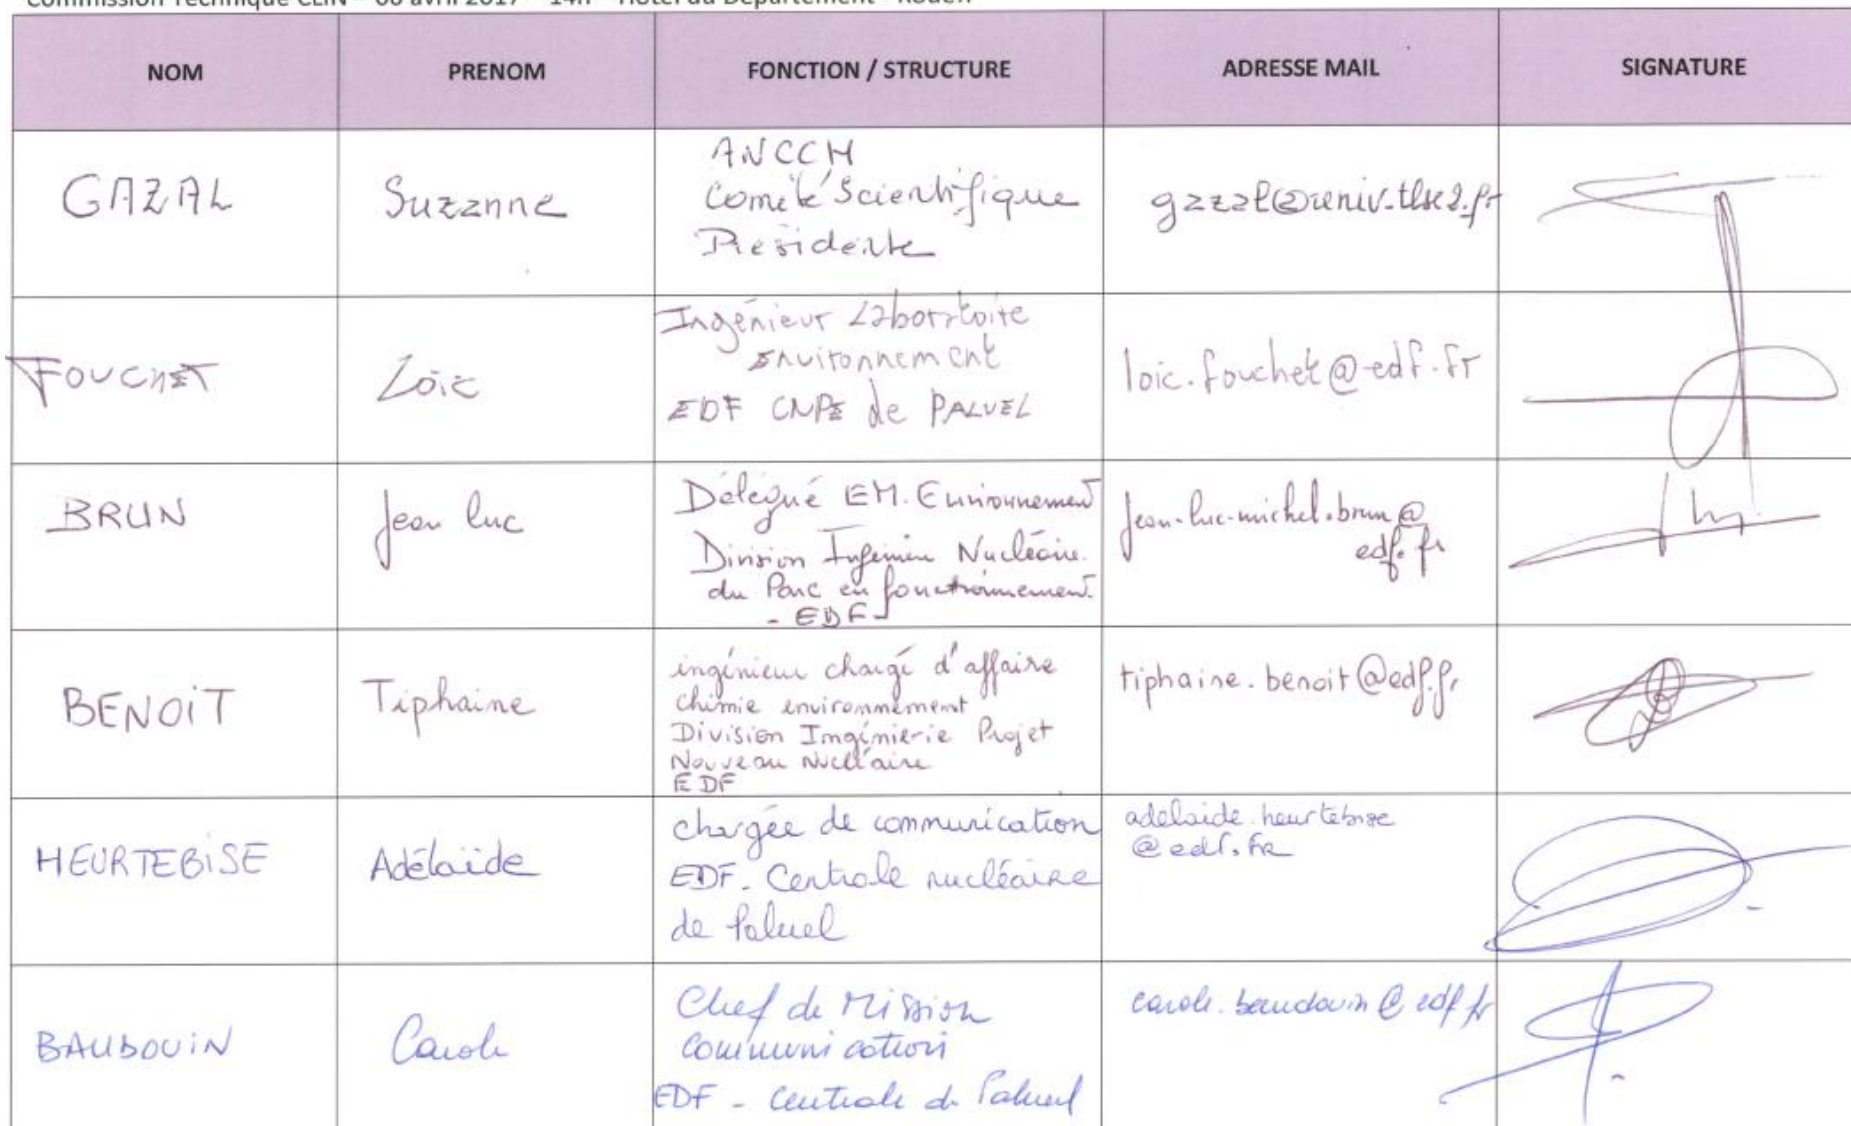 Commission Technique CLIN – 06 avril 2017 – 14h – Hôtel du Département - Rouen
NOM PRENOM FONCTION / STRUCTURE ADRESSE MAIL SIGNATURE
GAZAL Suzanne ANCCM
Comité Scientifique
Présidente
gazal@univ-tlse2.fr
FOUCHET Loïc Ingénieur Laboratoire
Environnement
EDF CNPE de PALUEL
loic.fouchet@edf.fr
BRUN Jean luc Délégué EM. Environnement
Division Ingénierie Nucléaire
du Parc en fonctionnement.
- EDF -
jean-luc-michel.brun@
edf.fr
BENOIT Tiphaine ingénieur chargé d'affaire
chimie environnement
Division Ingénierie Projet
Nouveau Nucléaire
EDF
tiphaine.benoit@edf.fr
HEURTEBISE Adélaïde chargée de communication
EDF - Centrale nucléaire
de Paluel
adelaide.heurtebise
@edf.fr
BAUDOUIN Carole Chef de Mission
Communication
EDF - Centrale de Paluel
carole.baudouin@edf.fr